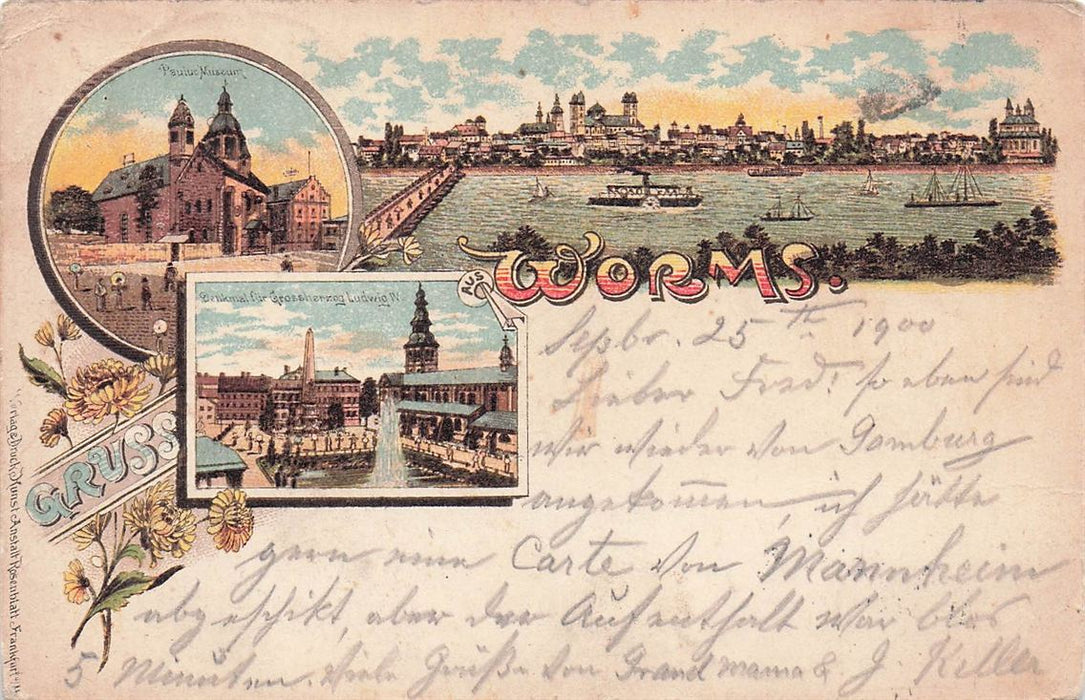 Paulus Museum
Denkmal für Grossherzog Ludwig IV
GRUSS
AUS
WORMS.
Verlag u. Druck Kunst-Anstalt Rosenblatt, Frankfurt a/M
Sepbr. 25th 1900
Lieber Fred! so eben sind
wir wieder von Homburg
angekom̅en, ich hätte
gern eine Carte von Mannheim
abgeschikt, aber der Aufenthalt war blos
5 Minuten. Viele Grüße von Grand mama & J Keller